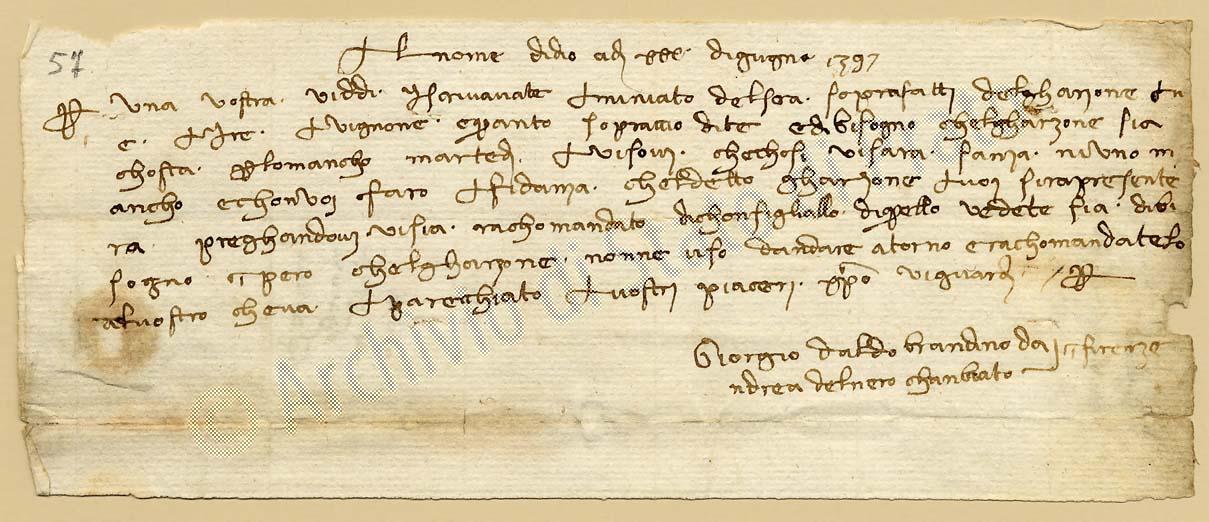 57
Al nome didio adj xxx digugno 1397
una vostra viddi Iscrivavate Aminiato delsea soprafatti delgharzone An
Avignone sopraccio dite edi bisogno chelgharzone sia
chosta lomancho martedi Avisovi chechosi visara sanza niuno m
ancho echonvoi staro Afidanza cheldetto gharzone Avoi sirapresente
ra preghandovi visia rachomandato dichonsigliallo diquello vedete sia dibi
sogno pero chelgharzone nonne uso dandare atorno erachomandatelo
alvostro cheva Aparecchiato Avostri piaceri xpo viguardj
Giorgio daldobrandino firenze
ndrea delnero chanbiato
© Archivio di Stato